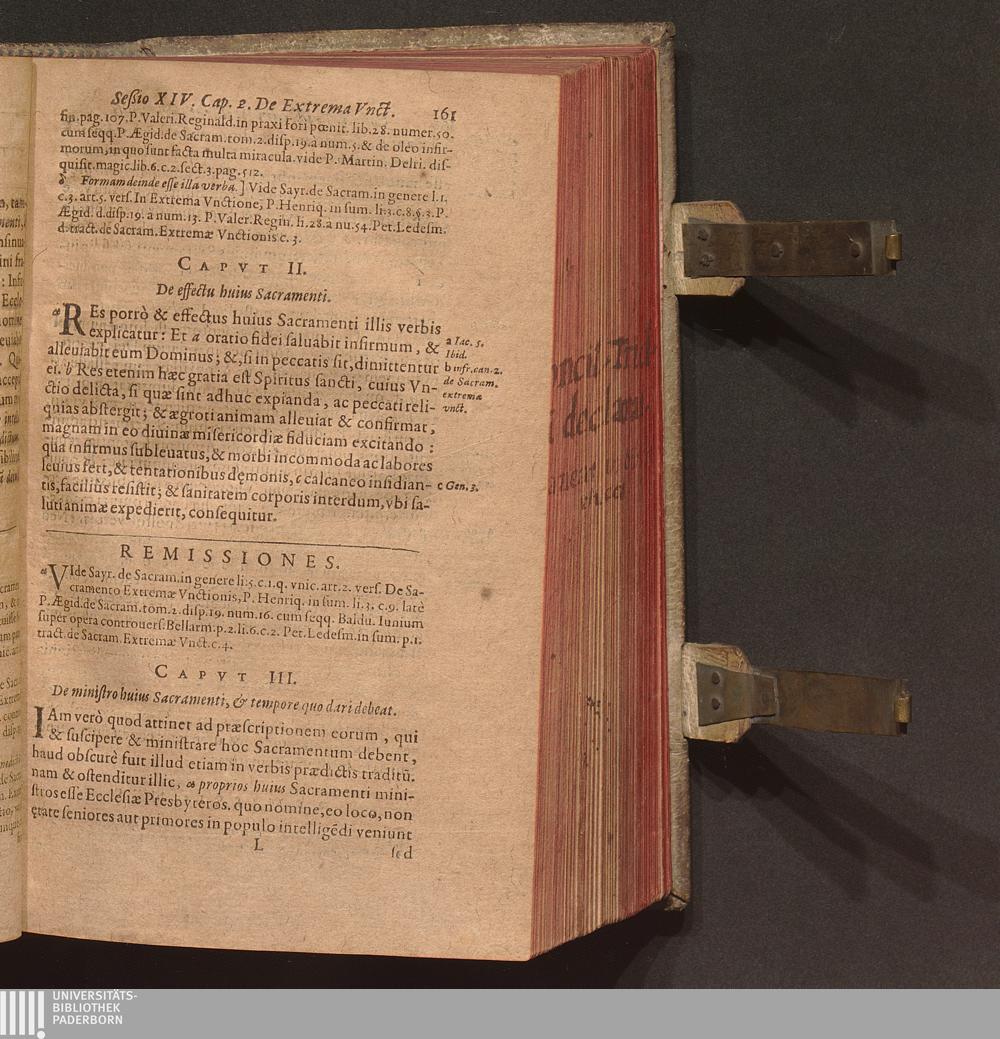 Sessio XIV. Cap. 2. De Extrema Vnct. 161
fin.pag.107.P.Valeri.Reginald.in praxi fori pœnit. lib.28. numer.50.
cum seqq.P.Ægid.de Sacram.tom.2.disp.19.a num.5.& de oleo infir-
morum,in quo sunt facta multa miracula.vide P. Martin. Delri. dis-
quisit.magic.lib.6.c.2.sect.3.pag.512.
b Formam deinde esse illa verba.] Vide Sayr.de Sacram.in genere l.1.
c.3. art.5. vers. In Extrema Vnctione, P. Henriq. in sum. li.3.c.8.§.3. P.
Ægid. d.disp.19. a num.13. P.Valer.Regin. li.28.a nu.54.Pet.Ledesm.
d.tract.de Sacram.Extremæ Vnctionis c. 3.
CAPVT II.
De effectu huius Sacramenti.
a REs porrò & effectus huius Sacramenti illis verbis
explicatur: Et a oratio fidei saluabit infirmum, &
alleuiabit eum Dominus; &, si in peccatis sit, dimittentur
ei. b Res etenim hæc gratia est Spiritus sancti, cuius Vn-
ctio delicta, si quæ sint adhuc expianda, ac peccati reli-
quias abstergit; & ægroti animam alleuiat & confirmat,
magnam in eo diuinæ misericordiæ fiduciam excitando:
qua infirmus subleuatus, & morbi incommoda ac labores
leuius fert, & tentationibus dęmonis, c calcaneo insidian-
tis, facilius resistit; & sanitatem corporis interdum, vbi sa-
luti animæ expedierit, consequitur.
a Iac. 5.
Ibid.
b infr.can.2.
de Sacram.
extrema
vnct.
c Gen.3.
REMISSIONES.
a VIde Sayr. de Sacram.in genere li.5.c.1.q. vnic. art.2. vers. De Sa-
cramento Extremæ Vnctionis, P. Henriq. in sum. li.3. c.9. latè
P.Ægid.de Sacram.tom.2.disp.19. num.16. cum seqq. Baldu. Iunium
super opera controuers.Bellarm.p.2.li.6.c.2. Pet.Ledesm.in sum. p.1.
tract.de Sacram.Extremæ Vnct.c.4.
CAPVT III.
De ministro huius Sacramenti, & tempore quo dari debeat.
IAm verò quod attinet ad præscriptionem eorum, qui
& suscipere & ministrare hoc Sacramentum debent,
haud obscurè fuit illud etiam in verbis prædictis traditũ.
nam & ostenditur illic, a proprios huius Sacramenti mini-
stros esse Ecclesiæ Presbyteros. quo nomine, eo loco, non
ętate seniores aut primores in populo intelligẽdi veniunt
L sed
UNIVERSITÄTS-
BIBLIOTHEK
PADERBORN